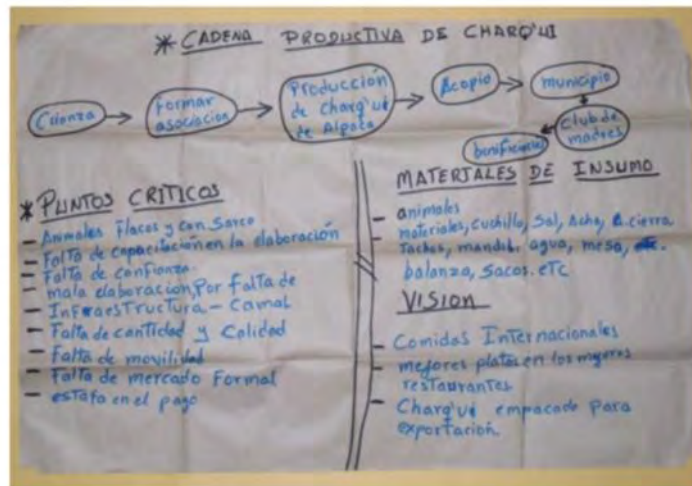 * CADENA PRODUCTIVA DE CHARQ'UI
Crianza
Formar
asociacion
Producción
de Charq'ui
de Alpaca
Acopio
municipio
Club de
madres
* PUNTOS CRITICOS
- Animales Flacos y con Sarco
- Falta de capacitación en la elaboración
- Falta de confianza
- mala elaboracion, Por falta de
- InFraesTructura - Camal
- Falta de cantidad y Calidad
- Falta de movilidad
- Falta de mercado Formal
- estafa en el pago
MATERIALES DE INSUMO
- animales
- materiales, cuchillo, Sal, Acha, cierra
Tachos, mandil. agua, mesa,
balanza, Sacos. eTc
VISION
- Comidas Internacionales
- mejores platos en los mejores
restaurantes
- Charq'ui empacado para
exportación.